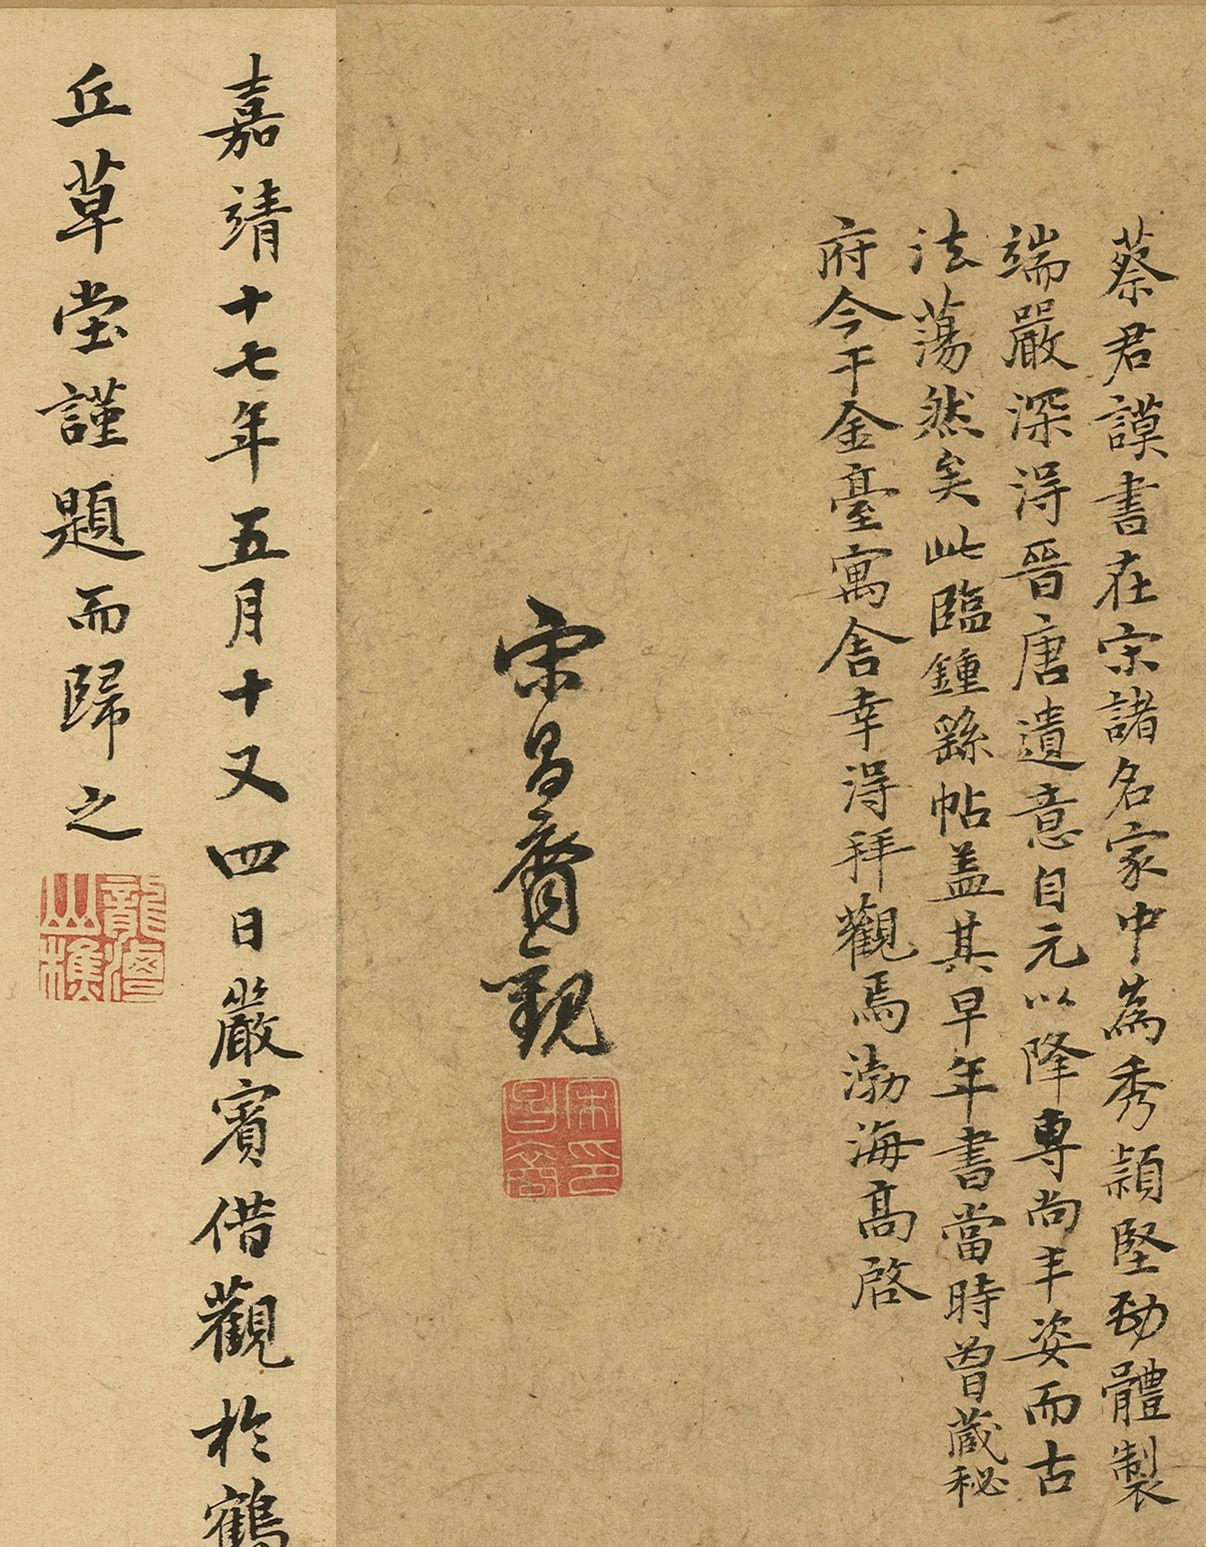 蔡君謨書在宋諸名家中為秀穎堅勁體製
端嚴深得晉唐遺意自元以降專尚丰姿而古
法蕩然矣此臨鍾繇帖盖其早年書當時曾藏秘
府今于金臺寓舍幸得拜觀焉渤海高啓
宋昌裔觀
宋昌裔印
嘉靖十七年五月十又四日嚴賓借觀於鶴
丘草堂謹題而歸之
龍灣山樵